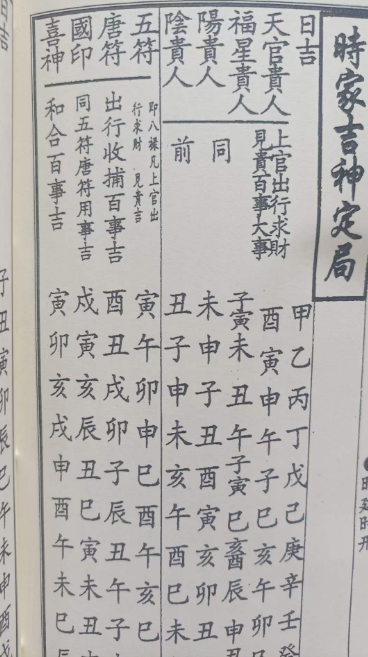 時家吉神定局
日吉 甲乙丙丁戊己庚辛壬癸
天官貴人 上官出行求財見貴百事大事 酉寅申午子巳亥午卯
福星貴人 同 子寅未丑午子寅巳辰申丑
陽貴人 未申子丑酉寅亥卯丑
陰貴人 前 丑子申未亥午酉巳未
五符 即八祿凡上官出行求財見貴吉 寅午卯申巳酉午亥巳
唐符 出行收捕百事吉 酉丑戌卯子辰丑午子
國印 同五符唐符用事吉 戌寅亥辰丑巳寅未丑
喜神 和合百事吉 寅卯亥戌申酉午未巳辰
子丑寅卯辰巳午未申酉